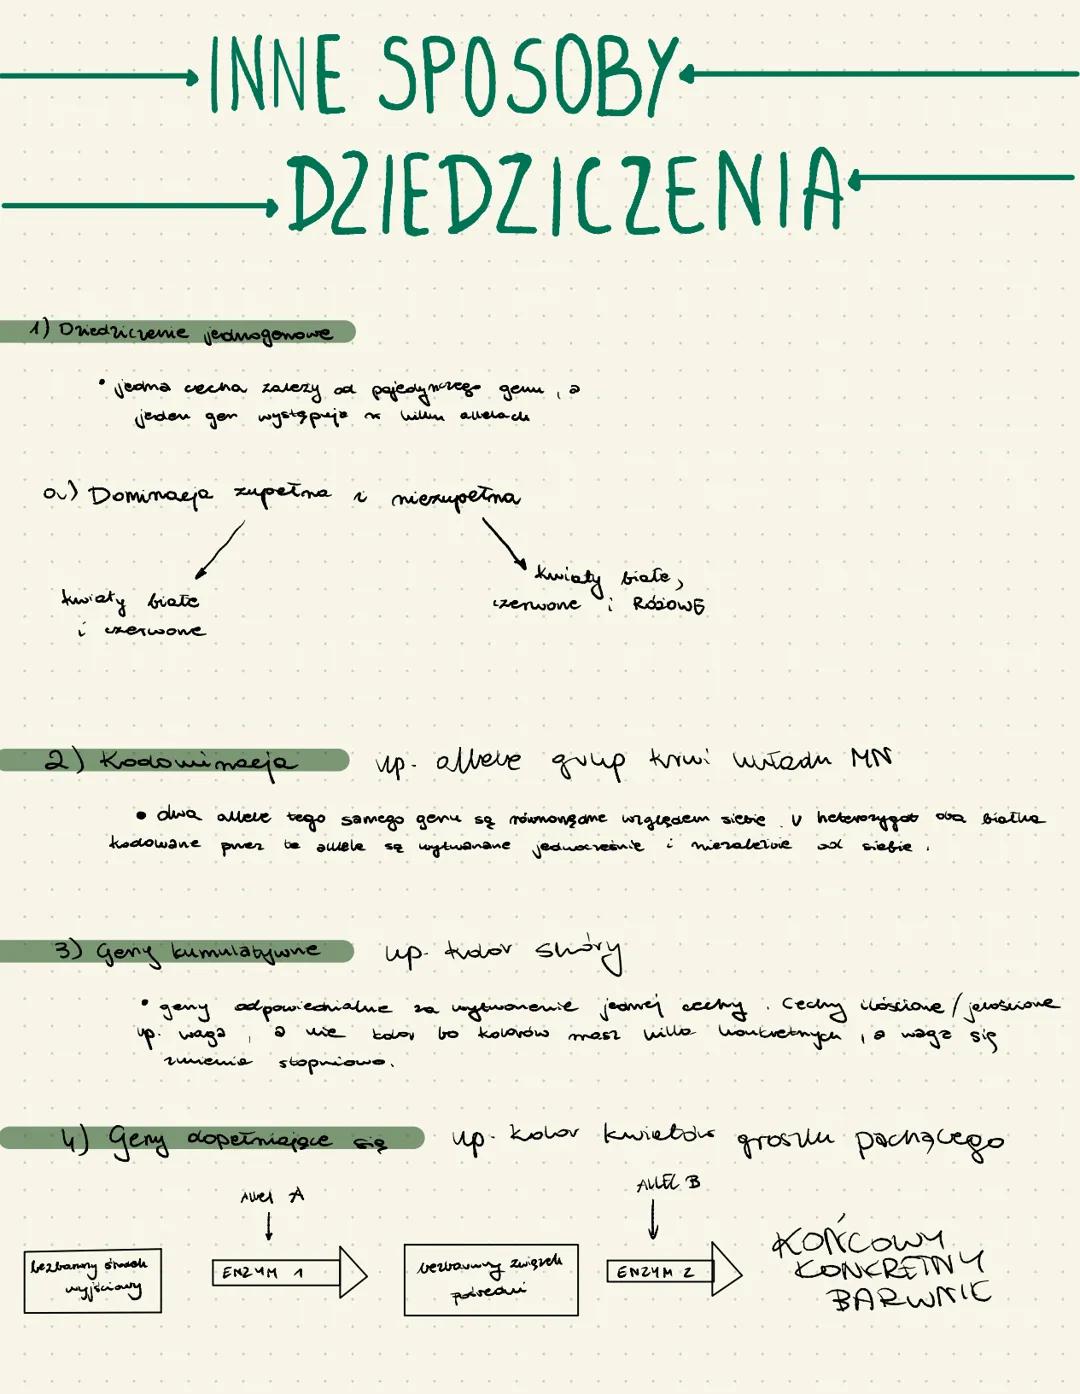 INNE SPOSOBY
DZIEDZICZENIA
1) Dziedziczenie jednogenowe
• jedna cecha zależy od pojedynczego genu, a
jeden gen występuje w kilku allelach
a) Dominacja zupełna i niezupełna
kwiaty białe
i czerwone
kwiaty białe,
czerwone i RÓŻOWE
2) Kodominacja np. allele grup krwi układu MN
• dwa allele tego samego genu są równorzędne względem siebie. U heterozygot oba białka
kodowane przez te allele są wytwarzane jednocześnie i niezależnie od siebie.
3) Geny kumulatywne np. kolor skóry
• geny odpowiedzialne za wytworzenie jednej cechy. Cechy ilościowe/jakościowe
np. waga, a nie kolor bo kolorów masz kilka konkretnych, a waga się
zmienia stopniowo.
4) Geny dopełniające się np. kolor kwiatów groszku pachącego
Allel A
ALLEL B
bezbarwny
wyjściowy
ENZYM 1
bezbarwny związek
pośredni
ENZYM 2
KOŃCOWY
KONKRETNY
BARWNIK